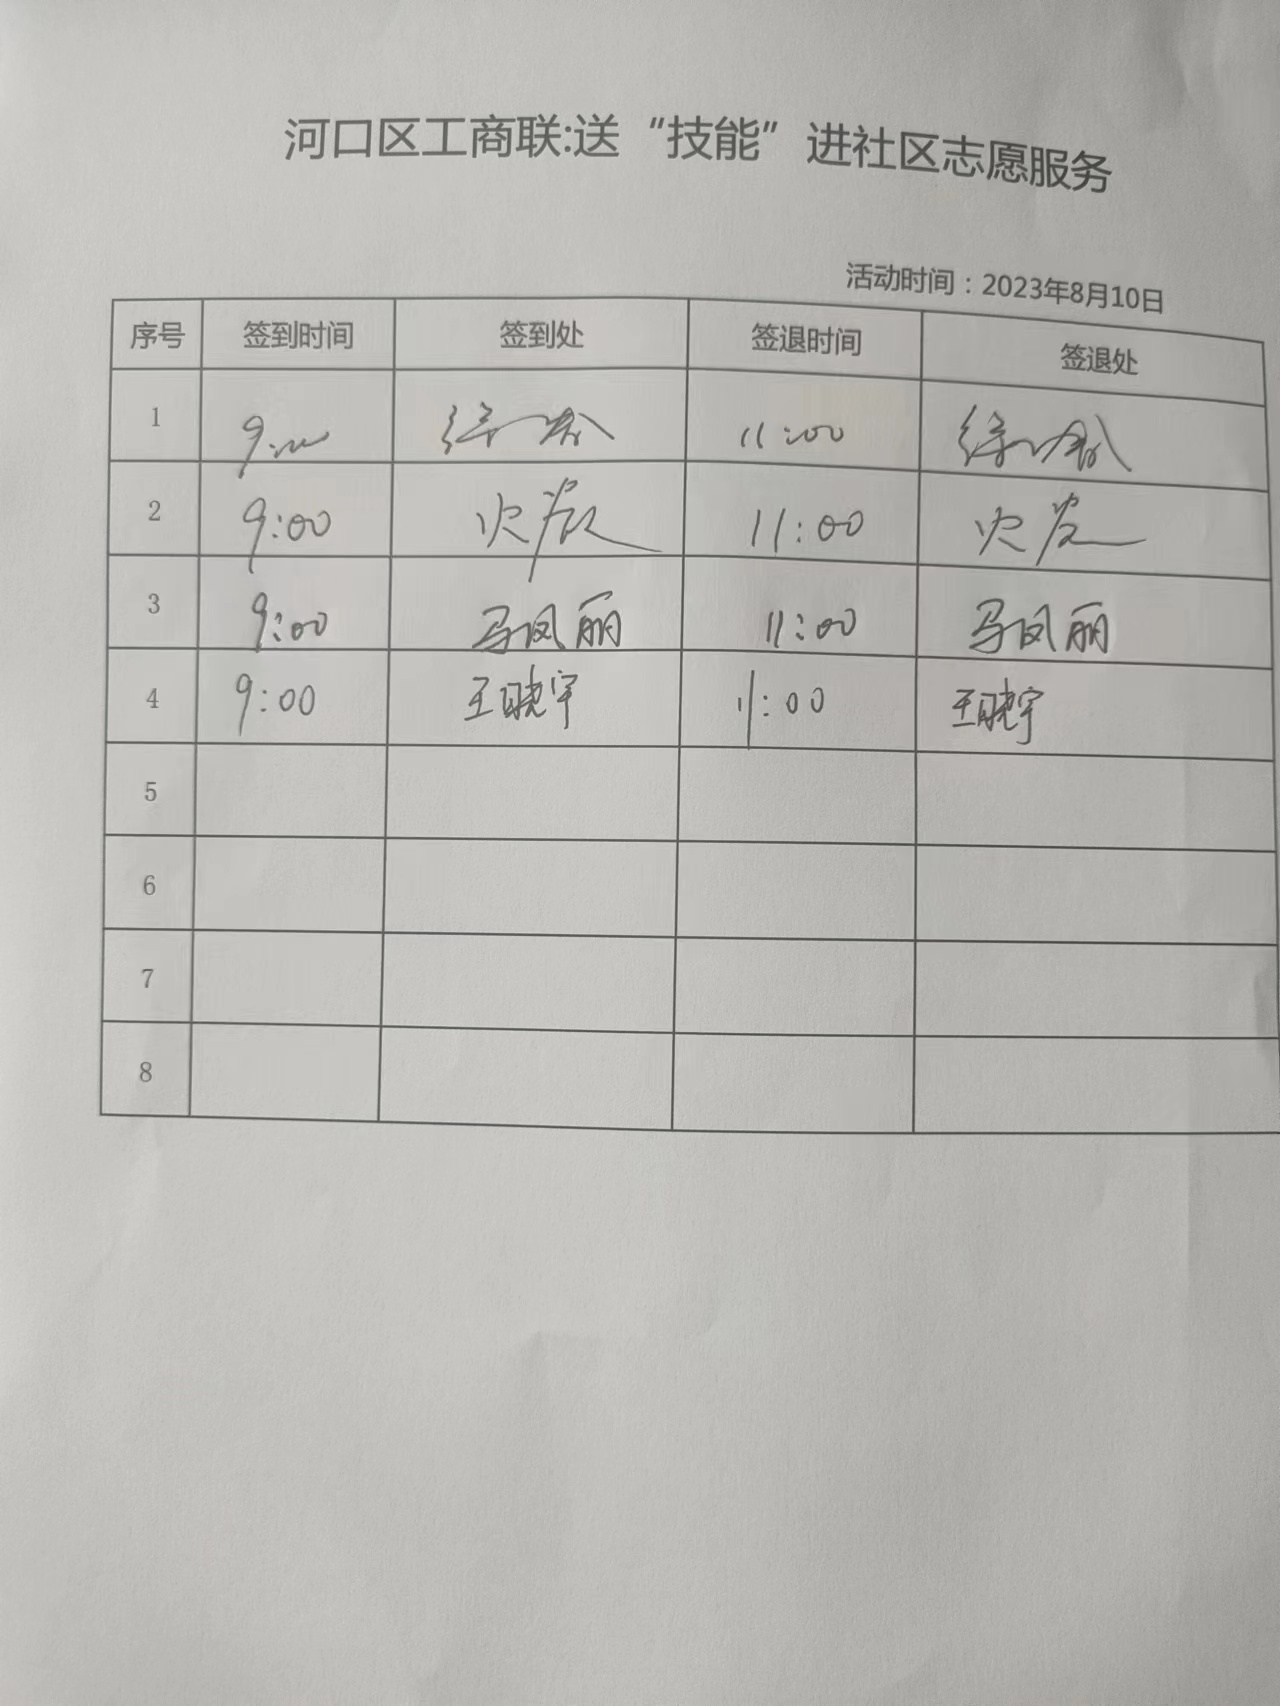 河口区工商联:送“技能”进社区志愿服务
活动时间：2023年8月10日
序号 签到时间 签到处 签退时间 签退处
1 11:00
2 9:00 11:00
3 9:00 马凤丽 11:00 马凤丽
4 9:00 王晓宇 11:00 王晓宇
5
6
7
8